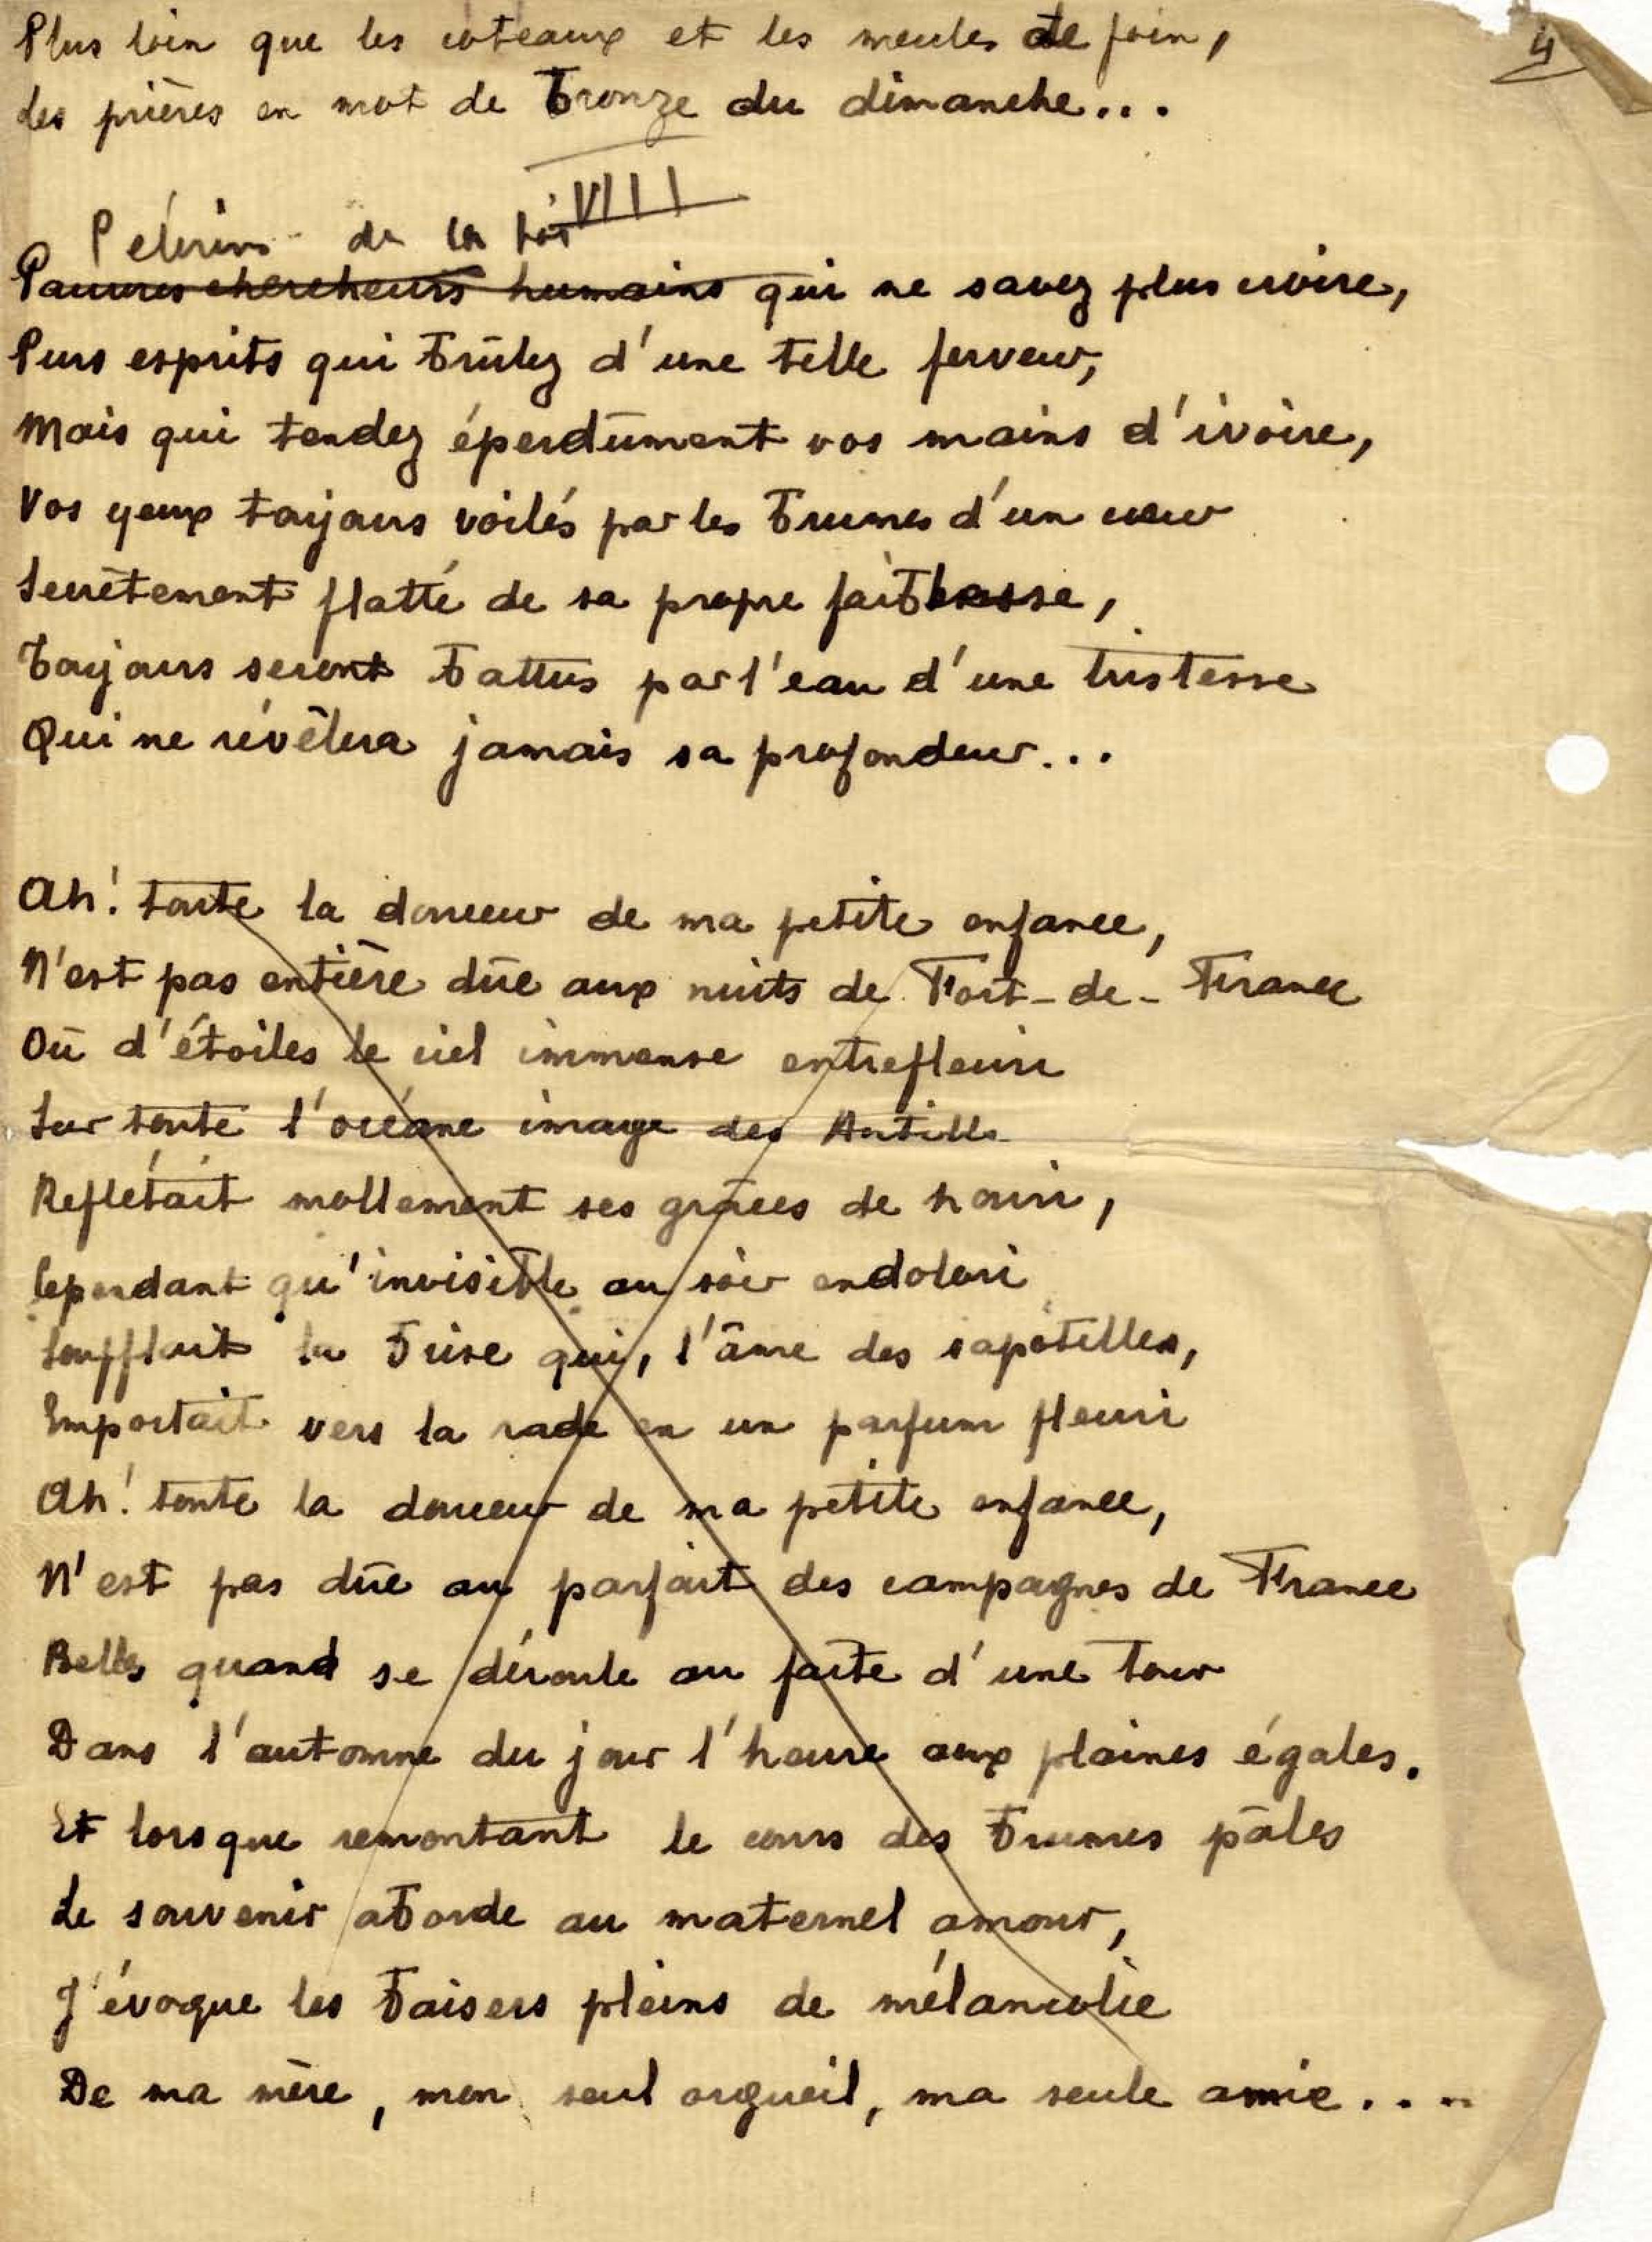 4
Plus loin que les coteaux et les meules de foin,
Les prières en mot de bronze du dimanche...
VIII
Pélerins de la foi
Pauvres chercheurs humains qui ne savez plus croire,
Purs esprits qui brûlez d'une telle ferveur,
Mais qui tendez éperdûment vos mains d'ivoire,
Vos yeux toujours voilés par les brumes d'un cœur
Secrètement flatté de sa propre faiblesse,
Toujours seront battus par l'eau d'une tristesse
Qui ne révèlera jamais sa profondeur...
Ah! toute la douceur de ma petite enfance,
N'est pas entière dûe aux nuits de Fort-de-France
Où d'étoiles le ciel immense entrefleuri
Sur toute l'océane image des Antilles
Reflétait mollement ses grâces de houri,
Cependant qu'invisible au soir endolori
Soufflait la brise qui, l'âme des sapotilles,
Emportait vers la rade en un parfum fleuri
Ah! toute la douceur de ma petite enfance,
N'est pas dûe au parfait des campagnes de France
Belles quand se déroule au faîte d'une tour
Dans l'automne du jour l'heure aux plaines égales.
Et lorsque remontant le cours des brumes pâles
Le souvenir aborde au maternel amour,
J'évoque les baisers pleins de mélancolie
De ma mère, mon seul orgueil, ma seule amie....